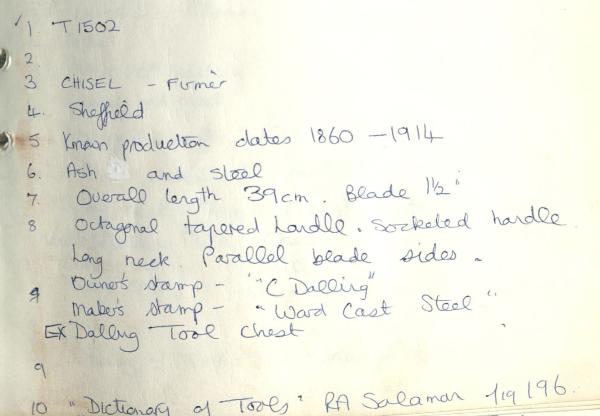 1. T1502
2.
3 CHISEL - Firmer
4. Sheffield
5 Known production dates 1860 - 1914
6. Ash and steel
7. Overall length 39cm. Blade 1½"
8 Octagonal tapered handle. Socketed handle
Long neck. Parallel blade sides.
Owner's stamp - "C Dalling"
Maker's stamp - "Ward Cast Steel"
EX Dalling Tool Chest
9
10 "Dictionary of Tools" RA Salaman fig 196.